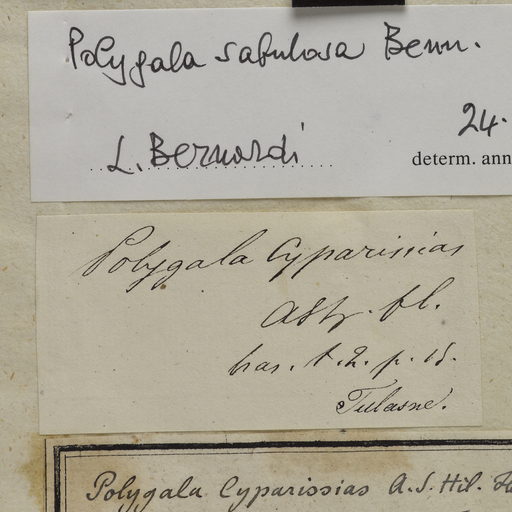 Polygala sabulosa Benn.
24.
L. Bernardi
determ. ann
Polygala Cyparissias
ASty. fl.
bras. t. 2. p. 15.
Tulasne.
Polygala Cyparissias A. S. Hil.